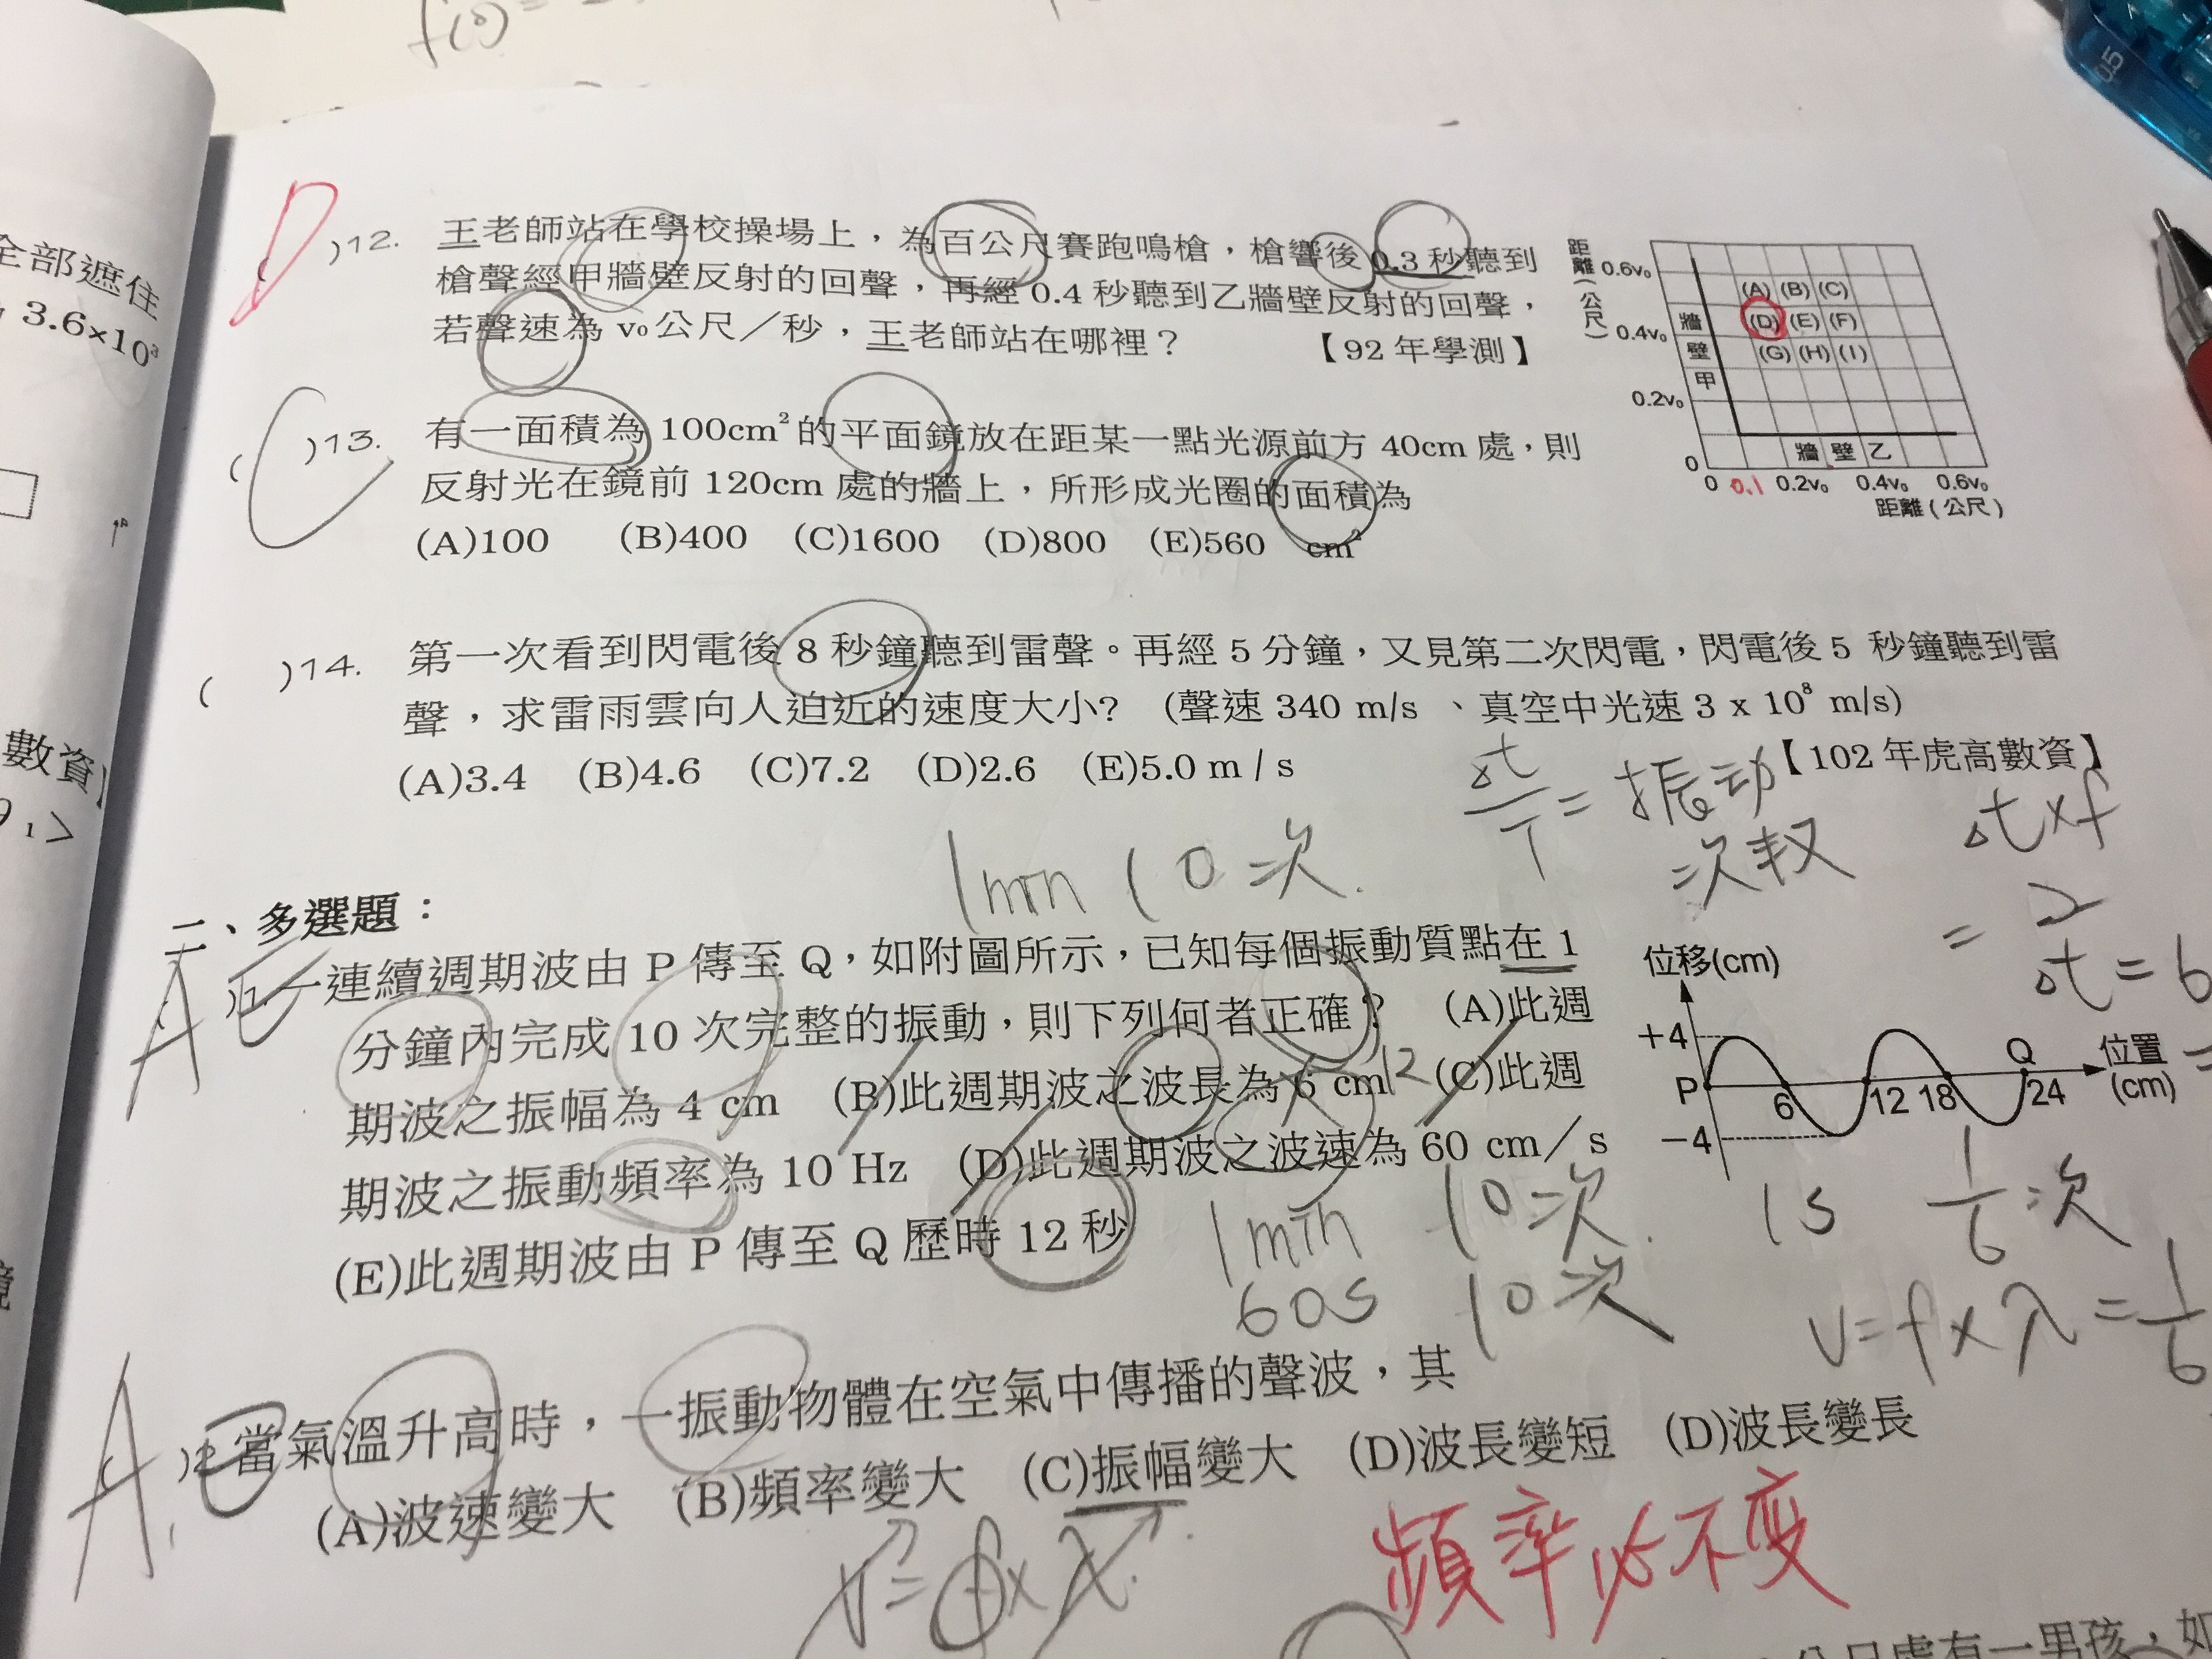 f(0)=
05
全部遮住
, 3.6×10³
數資】
D
( )12. 王老師站在學校操場上，為百公尺賽跑鳴槍，槍響後 0.3 秒聽到
槍聲經甲牆壁反射的回聲，再經 0.4 秒聽到乙牆壁反射的回聲，
若聲速為 v₀公尺／秒，王老師站在哪裡？ 【92 年學測】
距離(公尺)
0.6v₀
0.4v₀
0.2v₀
0
(A) (B) (C)
(D) (E) (F)
(G) (H) (I)
牆壁甲
牆壁乙
0 0.1 0.2v₀ 0.4v₀ 0.6v₀
距離(公尺)
C
( )13. 有一面積為 100cm²的平面鏡放在距某一點光源前方 40cm 處，則
反射光在鏡前 120cm 處的牆上，所形成光圈的面積為
(A)100 (B)400 (C)1600 (D)800 (E)560 cm²
( )14. 第一次看到閃電後 8 秒鐘聽到雷聲。再經 5 分鐘，又見第二次閃電，閃電後 5 秒鐘聽到雷
聲，求雷雨雲向人迫近的速度大小? (聲速 340 m/s 、真空中光速 3 x 10⁸ m/s)
(A)3.4 (B)4.6 (C)7.2 (D)2.6 (E)5.0 m / s 【102 年虎高數資】
Δt/T = 振动次数
Δt×f
= 2
Δt = 6
1min 10次.
二、多選題：
AE
( )1.一連續週期波由 P 傳至 Q，如附圖所示，已知每個振動質點在 1
分鐘內完成 10 次完整的振動，則下列何者正確？ (A)此週
期波之振幅為 4 cm (B)此週期波之波長為 6 cm 12 (C)此週
期波之振動頻率為 10 Hz (D)此週期波之波速為 60 cm／s
(E)此週期波由 P 傳至 Q 歷時 12 秒
位移(cm)
+4
P
−4
6 12 18 24
Q
位置
(cm)
1min 10次.
60s 10次
1s 1/6次
v=f×λ=1/6
A.E
( )2.當氣溫升高時，一振動物體在空氣中傳播的聲波，其
(A)波速變大 (B)頻率變大 (C)振幅變大 (D)波長變短 (D)波長變長
v=f×λ.
頻率必不变
處有一男孩，如